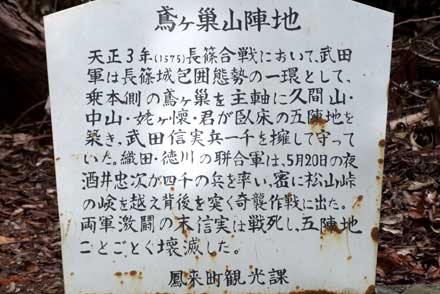 鳶ヶ巣山陣地
天正3年(1575)長篠合戦において、武田
軍は長篠城包囲態勢の一環として、
乗本側の鳶ヶ巣を主軸に久間山・
中山・姥ヶ懐・君が臥床の五陣地を
築き、武田信実兵一千を擁して守って
いた。織田・徳川の聯合軍は、5月20日の夜
酒井忠次が四千の兵を率い、密に松山峠
の嶮を越え背後を突く奇襲作戦に出た。
両軍激闘の末信実は戦死し、五陣地
ことごとく壊滅した。
鳳来町観光課